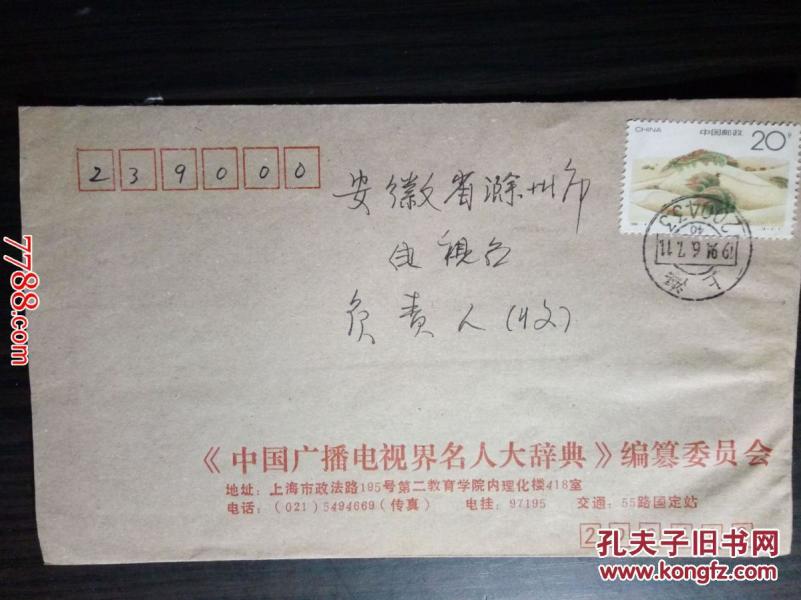 239000
CHINA 中国邮政 20分
安徽省滁州市
电视台
负责人(收)
上海
《中国广播电视界名人大辞典》编篡委员会
地址：上海市政法路195号第二教育学院内理化楼418室
电话：(021)5494669(传真) 电挂：97195 交通：55路国定站
7788.com
孔夫子旧书网
www.kongfz.com